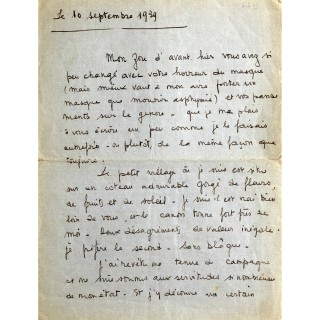 Le 10 septembre 1939
Mon Zou d'avant-hier vous avez si
peu changé avec votre horreur du masque
(mais mieux vaut à mon avis porter un
masque que mourir asphyxié) et vos panse-
ments sur le genou - que je me plais
à vous écrire un peu comme je le faisais
autrefois - ou plutôt, de la même façon que
toujours.
Le petit village où je suis est situé
sur un coteau admirable gorgé de fleurs,
de fruits et de soleil. Je suis il est vrai bien
loin de vous, et le canon tonne fort près de
moi. Deux désagréments de valeur inégale.
je préfère le second. Sans blague.
J'ai revêtu ma tenue de campagne
et me suis soumis aux servitudes si nombreuses
de mon état. Et j'y découvre un certain